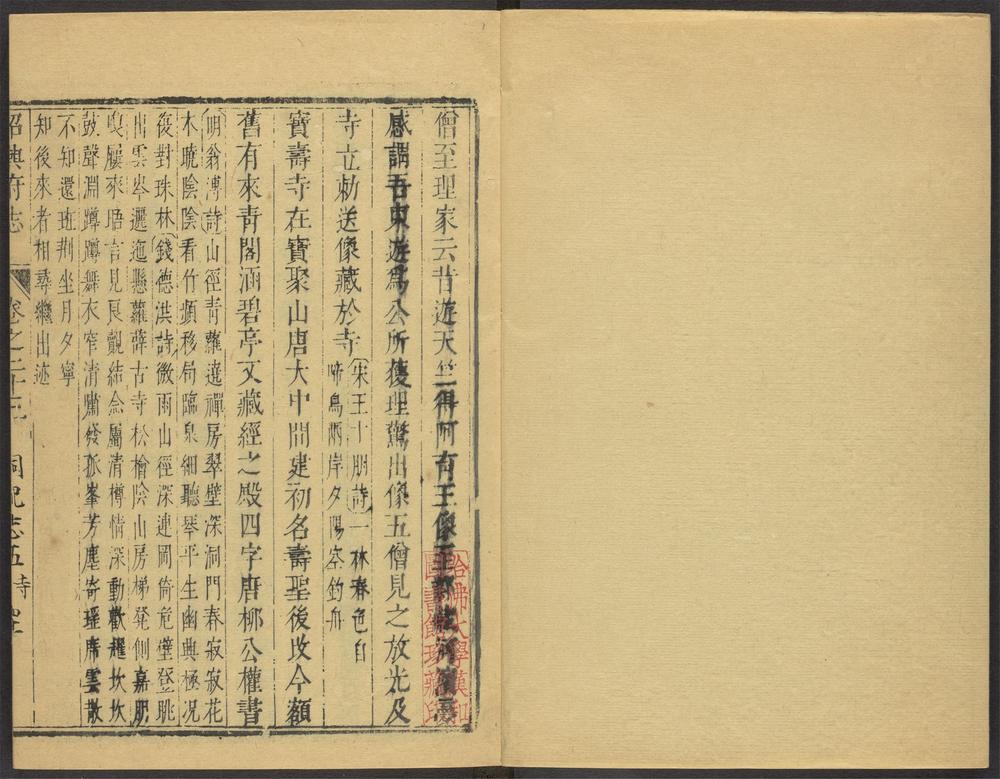 僧至理家云昔遊天竺得阿育王像至
感謂吾東遊爲公所獲理驚出像五僧見之放光及
寺立勅送像藏於寺宋王十朋詩一林春色自
啼鳥兩岸夕陽空釣舟
寶壽寺在寶聚山唐大中間建初名壽聖後改今額
舊有來青閣涵碧亭又藏經之殿四字唐柳公權書
明翁溥詩山徑青蘿遶禪房翠壁深洞門春寂寂花
木曉陰陰看竹頻移局臨泉細聽琴平生幽興極况
復對珠林錢德洪詩微雨山徑深連岡倚危壁登眺
出雲岑邐迤懸蘿薜古寺松檜陰山房梯發側嘉朋
屢來晤言見良覿結念屬清樽情深動歡趯坎坎
鼓聲淵蹲蹲舞衣窄清嘯發孤峯芳塵寄瑶席雲散
不知還班荆坐月夕寧
知後來者相尋繼出迹
紹興府志 卷之二十三 祠祀志五 寺
哈佛大學漢和圖書館珍藏印